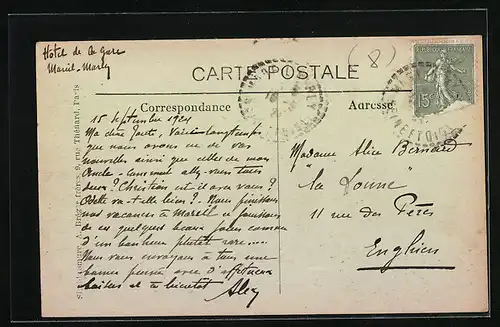 Hôtel de la Gare
Mareil-Marly
(8)
CARTE POSTALE
REPUBLIQUE FRANCAISE
15c
Correspondance
Adresse
15 Septembre 1921
Ma chère voici longtemps
que nous avons eu de vos
nouvelles ainsi que celles de mon
Oncle - comment allez-vous tous
deux? Christian est-il avec vous?
Odette va-t-elle bien? Nous finissons
nos vacances à Mareil et jouissons
de ces quelques beaux jours comme
d'un bonheur plutôt rare....
Nous vous envoyons à tous une
bonne pensée avec d'affectueux
baisers et à bientôt Alex
Madame Alice Bernard
"La
11 rue des Pères
Enghien
9, rue Thénard, Paris